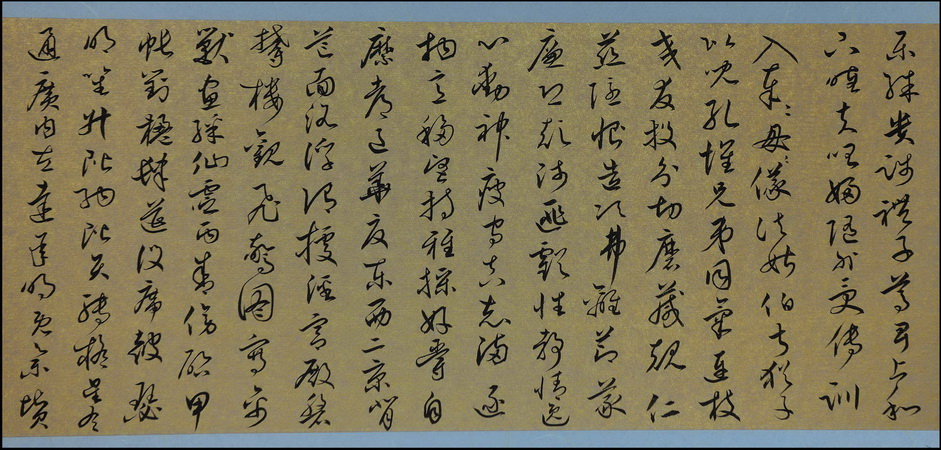 樂殊貴賤禮別尊卑上和
下睦夫唱婦隨外受傅訓
入奉母儀諸姑伯叔猶子
比兒孔懷兄弟同氣連枝
交友投分切磨箴規仁
慈隱惻造次弗離節義
廉退顛沛匪虧性靜情逸
心動神疲守真志滿逐
物意移堅持雅操好爵自
縻都邑華夏東西二京背
芒面洛浮渭據涇宮殿盤
鬱樓觀飛驚圖寫禽
獸畫綵仙靈丙舍傍啟甲
帳對楹肆筵設席鼓瑟
吹笙升階納陛弁轉疑星右
通廣內左達承明既集墳